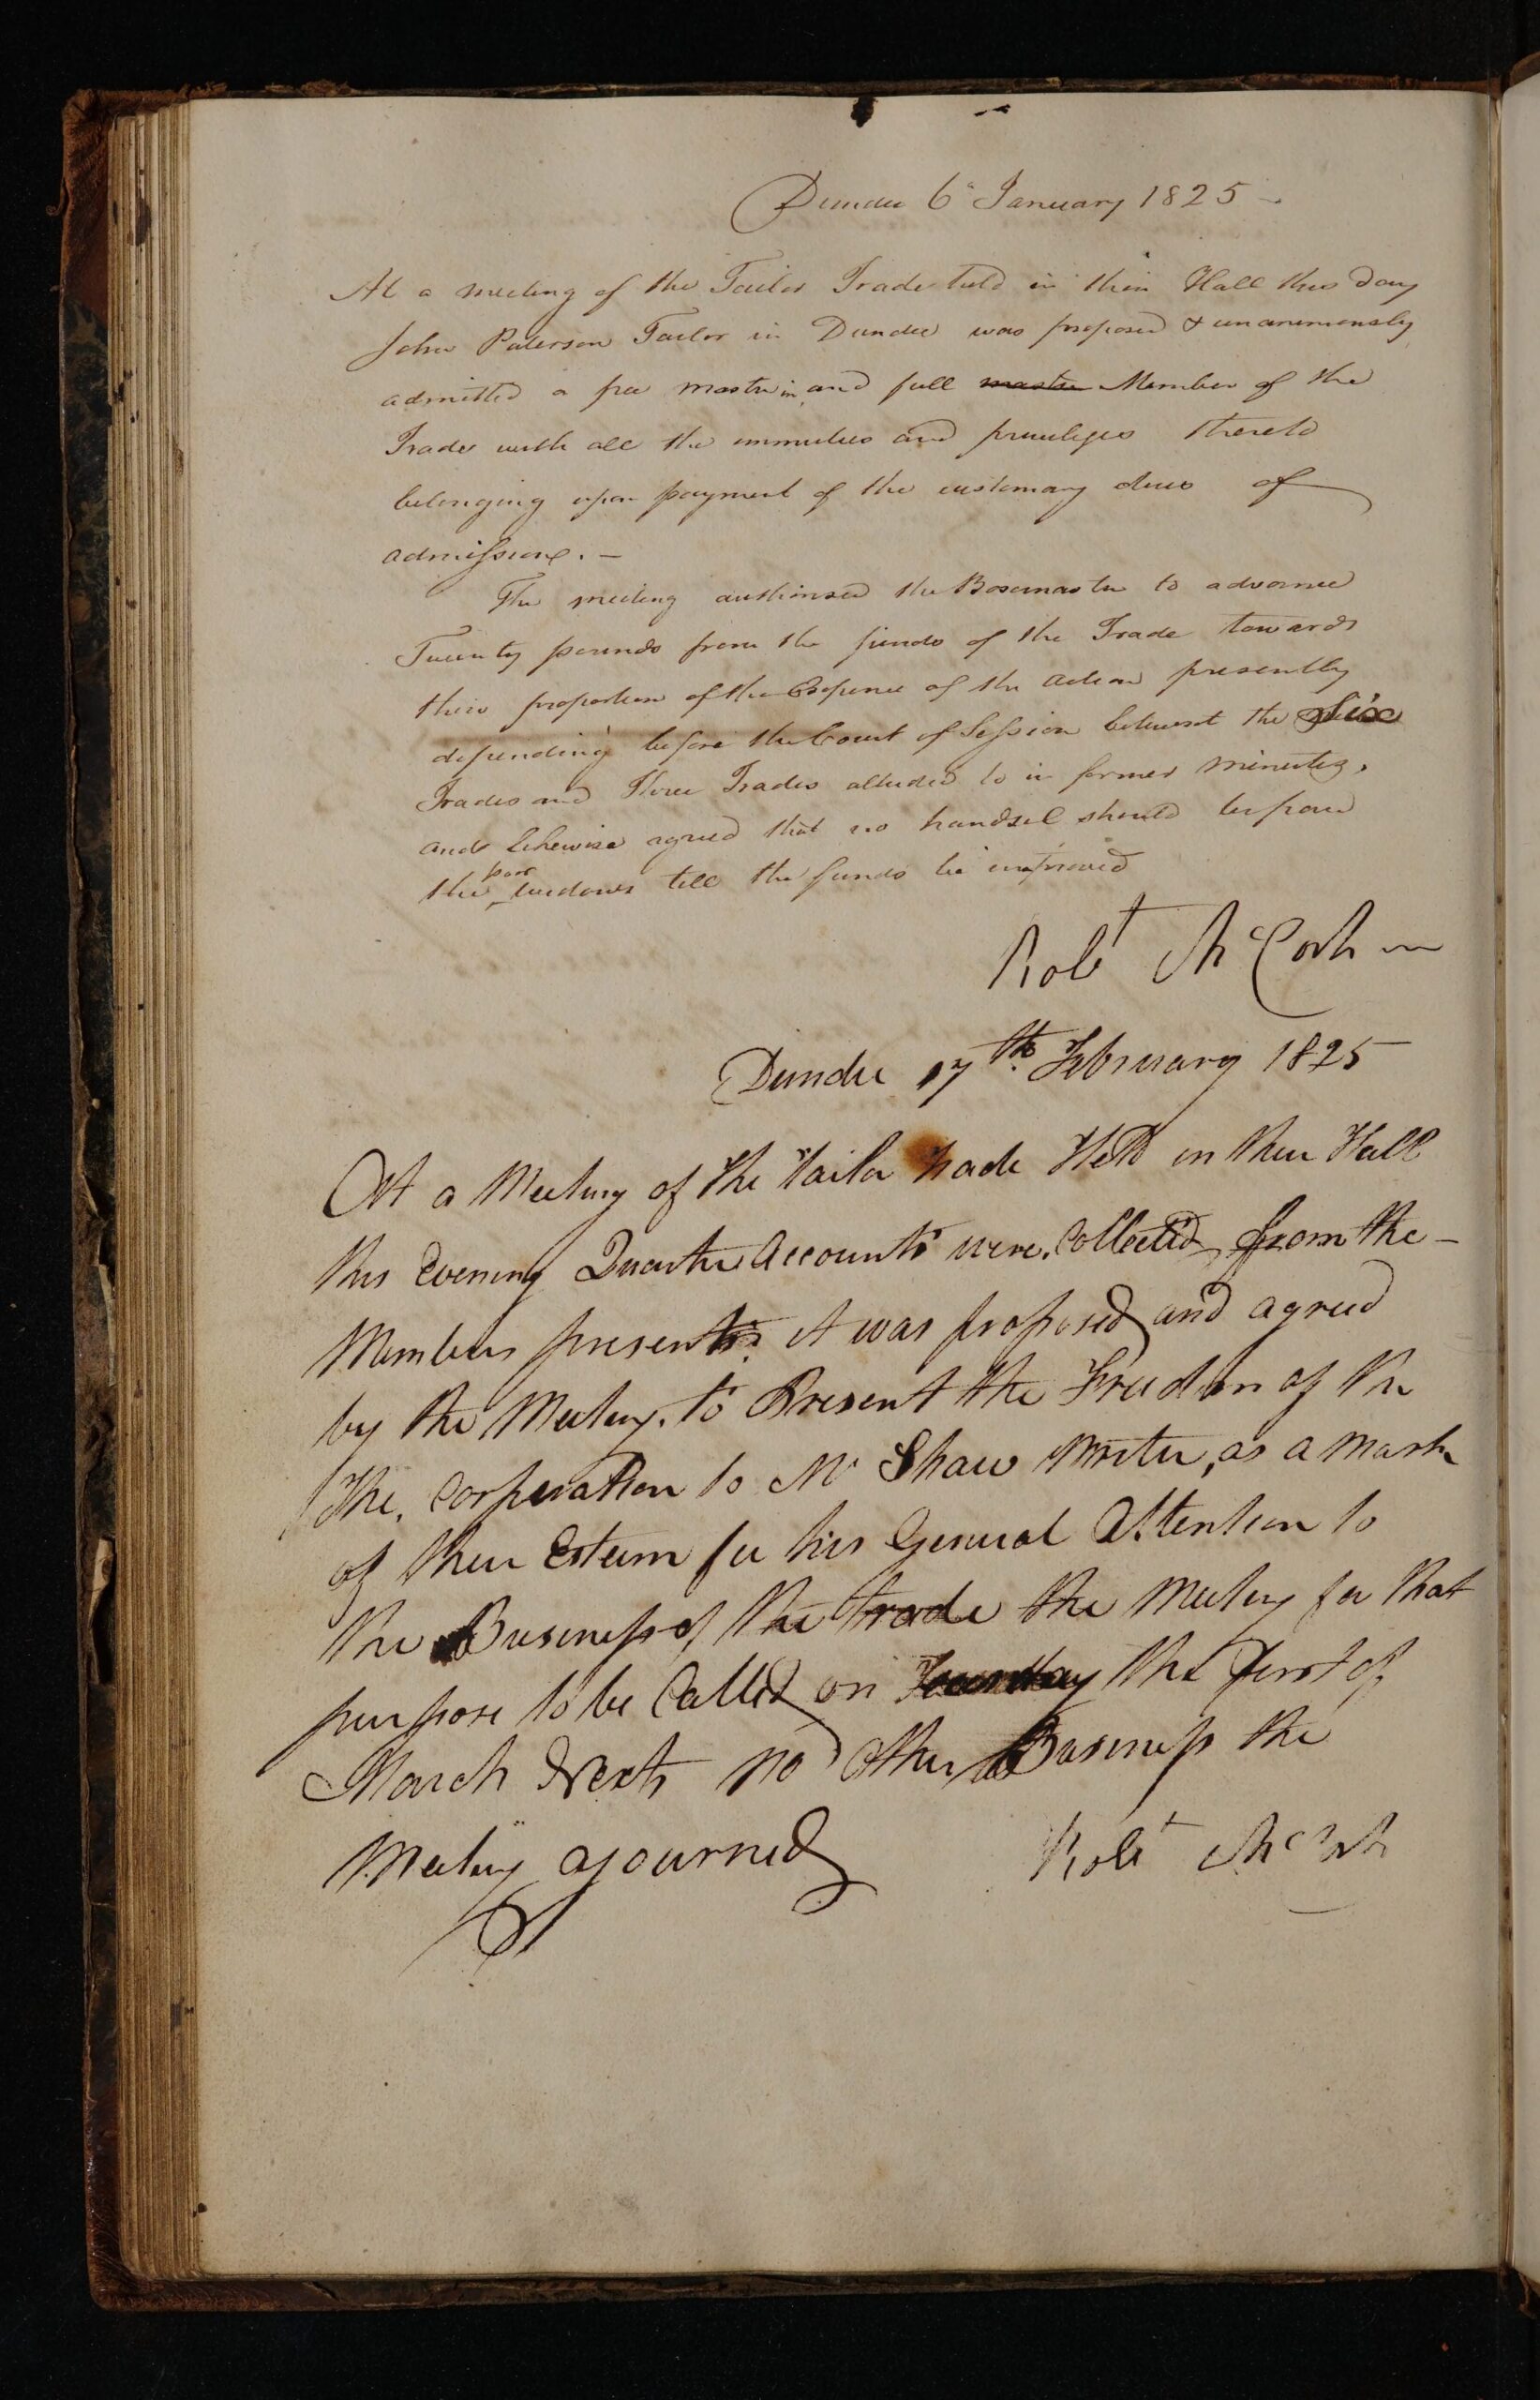 Dundee 6 January 1825 -
At a meeting of the Tailor Trade held in their Hall this day
John Paterson Tailor in Dundee was proposed & unanimously
admitted a free master in and full master Member of the
Trade with all the immunities and privileges thereto
belonging upon payment of the customary dues of
admission. -
The meeting authorised the Boxmaster to advance
Twenty pounds from the funds of the Trade towards
their proportion of the Expence of the action presently
depending before the Court of Session betwixt the Six
Trades and Three Trades alluded to in former minutes,
and likewise agreed that no handsel should be paid
the poor widows till the funds be improved
Robt McCosh
Dundee 17th February 1825
At a Meeting of the tailor trade Held in their Hall
this Evening Quarter accounts were, Collected from the -
Members present. it was proposed and agreed
by the Meeting. to Present the Freedom of the
the, Corporation to Mr Shaw Writer, as a mark
of their Esteem for his General Attention to
the Business of the trade the Meeting for that
purpose to be Called on Tuesday the first of
March Next no other Business the
Meeting ajourned
Robt McCosh